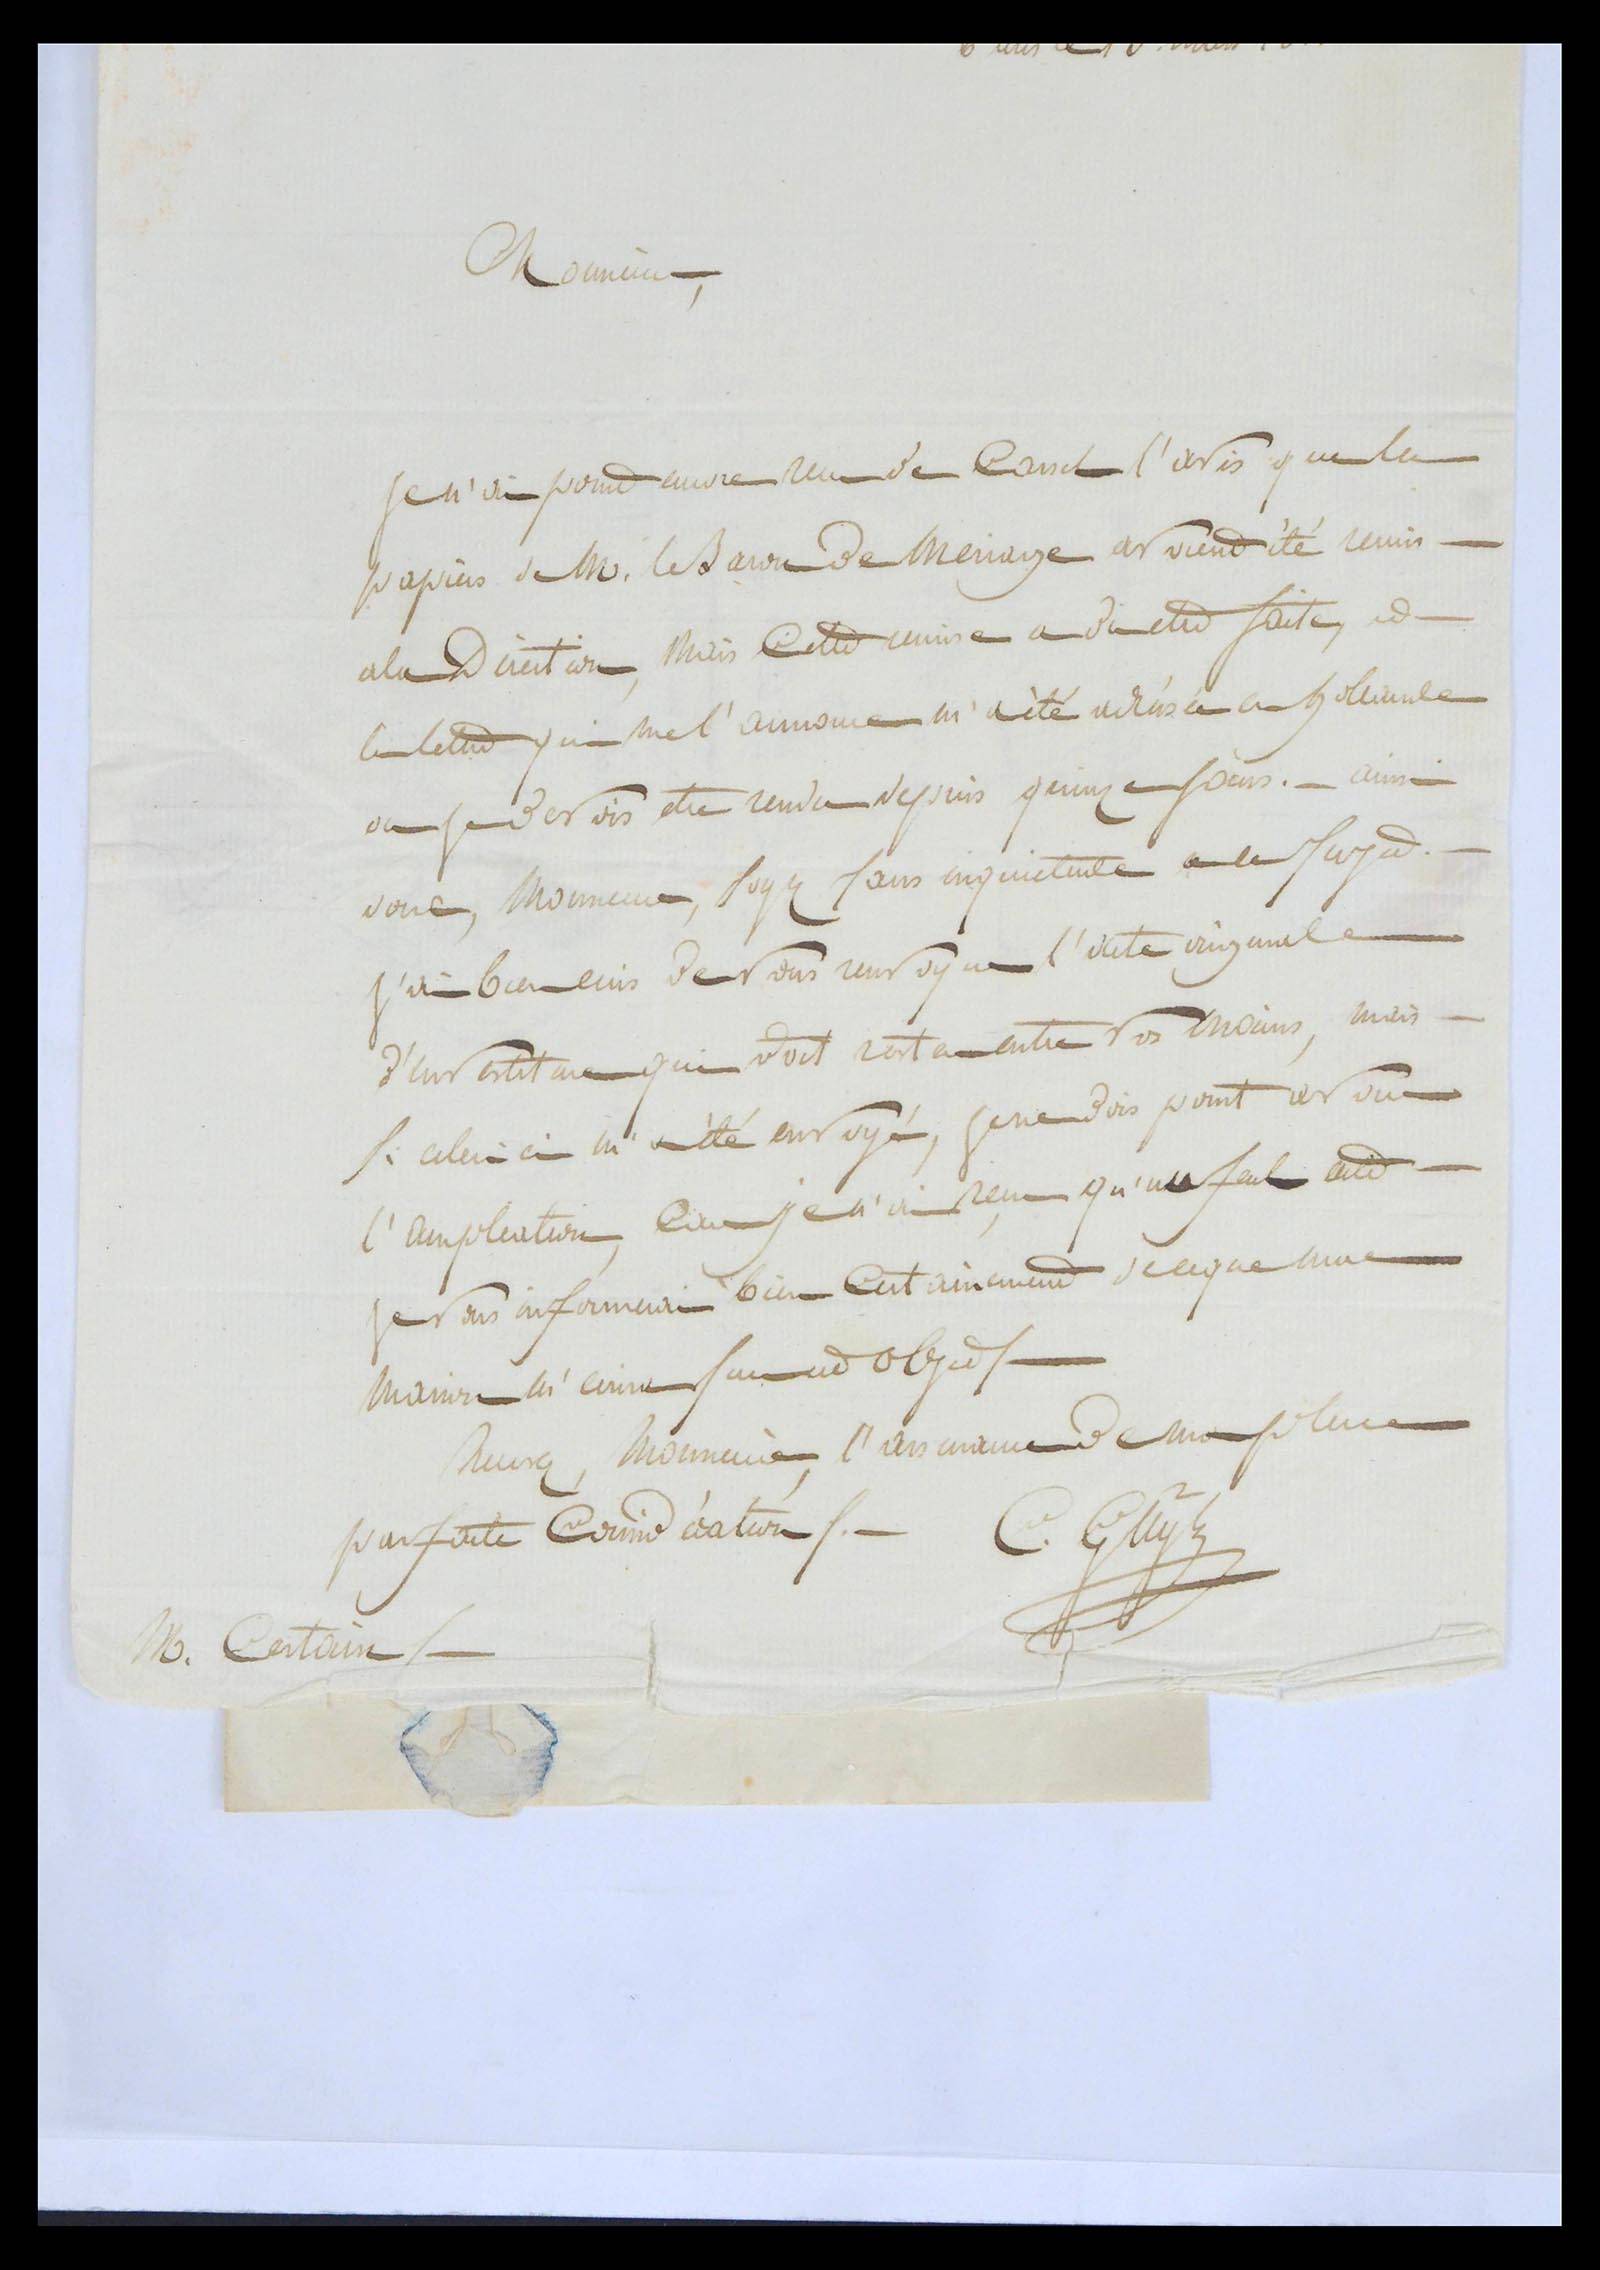 Monsieur,
je n'ai point encore reçu de Cassel l'avis que les
papiers de M. le Baron de Meriage avoient été remis
a la Direction, mais Cette remise a dû etre faite, et
la lettre qui me l'annonce m'a été adréssée en hollande
ou je devois etre rendu depuis quinze jours. - ainsi
donc, Monsieur, soyez sans inquietude a ce sujet. -
j'ai bien cru devous renvoyer l'acte original
d'investiture qui doit rester entre vos mains, mais
si celui ci m'a été envoyé, je ne dois point avoir
l'ampliation, Car je n'ai reçu qu'un seul acte
je vous informerai bien Certainement de ce que ma
maison m'ecrira sur cet objet
Recevez, Monsieur, l'assurance de ma plus
parfaite Considération. -
M. Certain